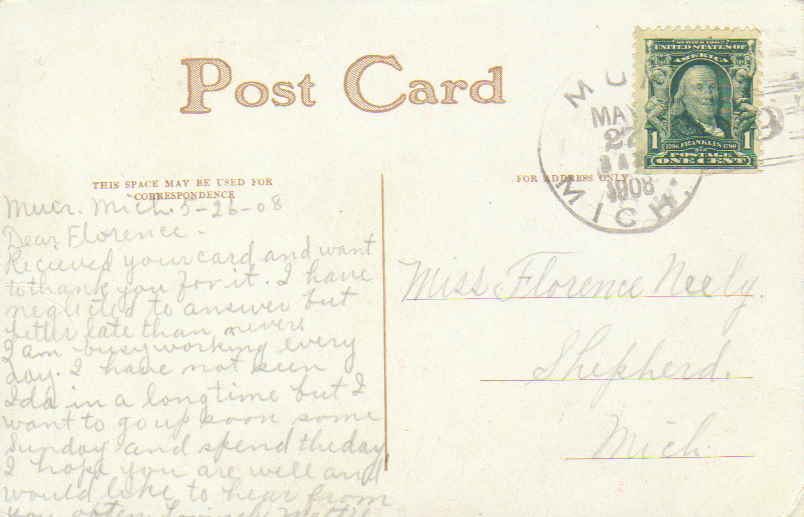 Post Card
THIS SPACE MAY BE USED FOR
CORRESPONDENCE
FOR ADDRESS ONLY
Muir. Mich. 5-26-08
Dear Florence-
Recieved your card and want
to thank you for it. I have
neglected to answer but
better late than never.
I am busy working every
day. I have not seen
Ida in a long time but I
want to go up soon some
Sunday and spend the day
I hope you are well and
would like to hear from
you often. Lovingly Mattie
Miss Florence Neely.
Shepherd.
Mich.
MU
MAY
27
1908
MICH.
UNITED STATES OF
AMERICA
1 1
1706 FRANKLIN 1790
POSTAGE
ONE CENT